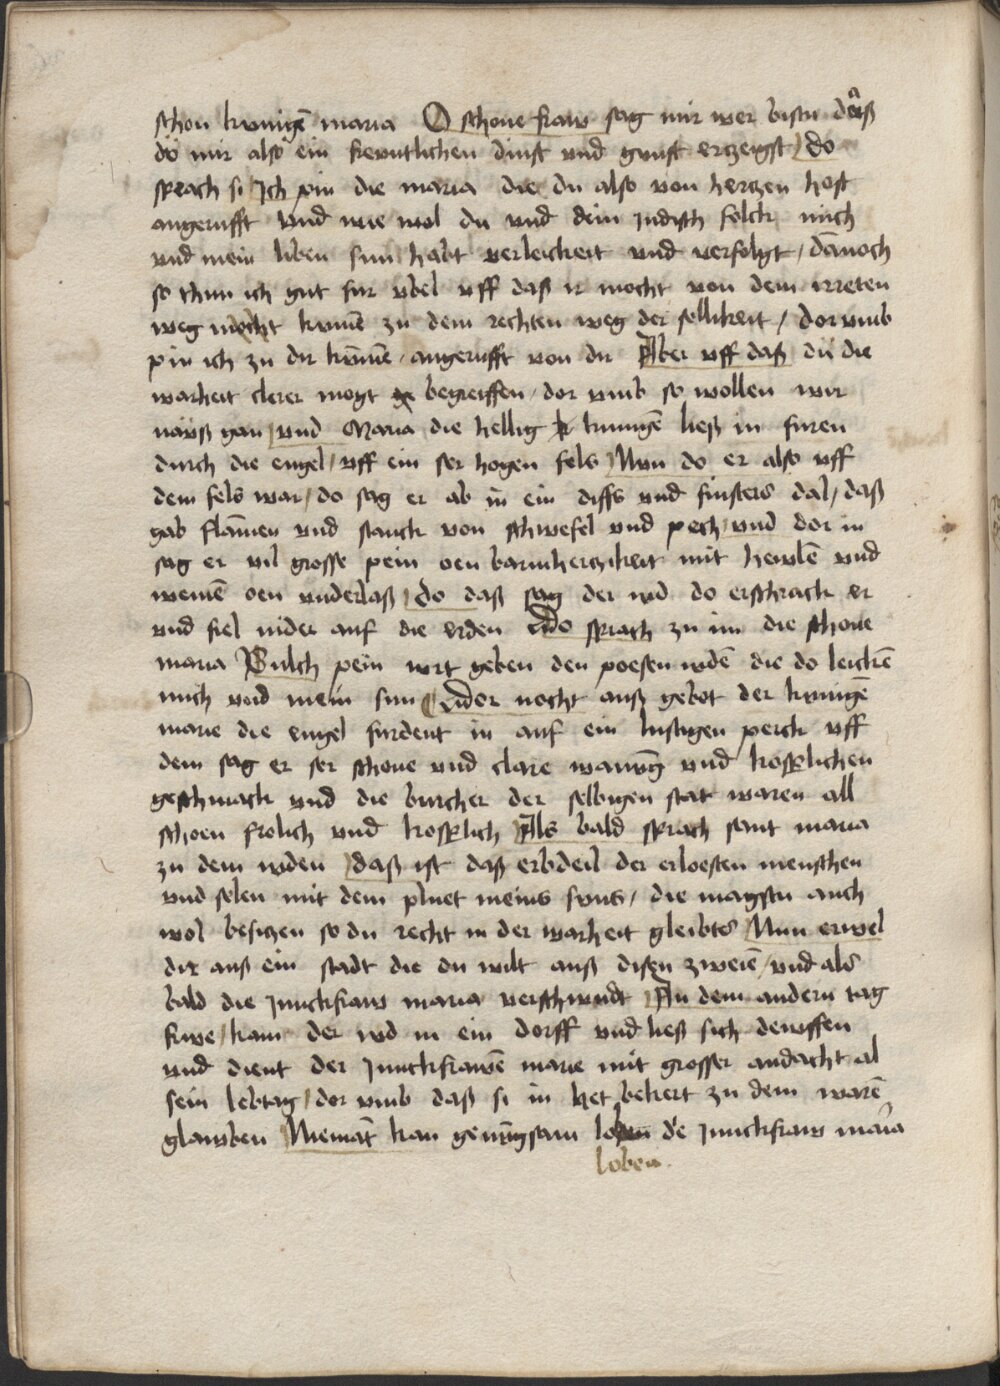 schon kunigē maria O schone fraw sag mir wer bistu daß
du mir also ein freuntlichen dinst vnd gunst erczeigst / do
sprach si Ich pin die maria die du also von herczen host
angerufft vnd wie wol du vnd dein Iudisch folck mich
vnd mein liben sun habt verleickeit vnd verfolgt / dānoch
so thun ich gut fur vbel vff daß ir mocht von dem irreten
weg mocht kumē zu dem rechten weg der sellikeit / dor vmb
pin ich zu dir kūmē angerufft von dir Aber vff daß du die
warheit clerer mogt begreiffen dor vmb so wollen wir
nauß gan / vnd Maria die hellig kunigē ließ in furen
durch die engel / vff ein ser hogen fels / Nun do er also vff
dem fels war / do sag er ab in ein diffs vnd finsters dal / daß
gab flāmen vnd stanck von schwefel vnd pech / vnd dor in
sag er vil grosse pein oen barmherczikeit mit hewlē vnd
weinē oen vnderlaß / do daß sag der iud do erschrack er
vnd fiel nider auf die erden Do sprach zu im die schone
maria Sulch pein wirt geben den poesen iudē die do leickē
mich vnd mein sun / Dor nocht auß gebot der kunigē
marie die engel furdent in auf ein lustigen perck vff
dem sag er ser schone vnd clare wanūg vnd kosplichen
geschmack vnd die burcher der selbigen stat waren all
schoen frolich vnd kosplich / Als bald sprach sant maria
zu dem iuden / daß ist daß erbdeil der erloesten menschen
vnd selen mit dem pluet meins suns / die magstu auch
wol besiczen so du recht in der warheit gleibts / Nun erwel
dir auß ein stadt die du wilt auß disen zweiē / vnd als
bald die Iunckfraw maria verschwndt / An dem andern tag
frwe / kam der iud in ein dorff vnd ließ sich deuffen
vnd dient der Iunckfrawē marie mit grosser andacht al
sein lebtag / dor vmb daß si in het bekert zu dem warē
glawben Niemāt kan genūgsam de Iunckfraw maria
loben.